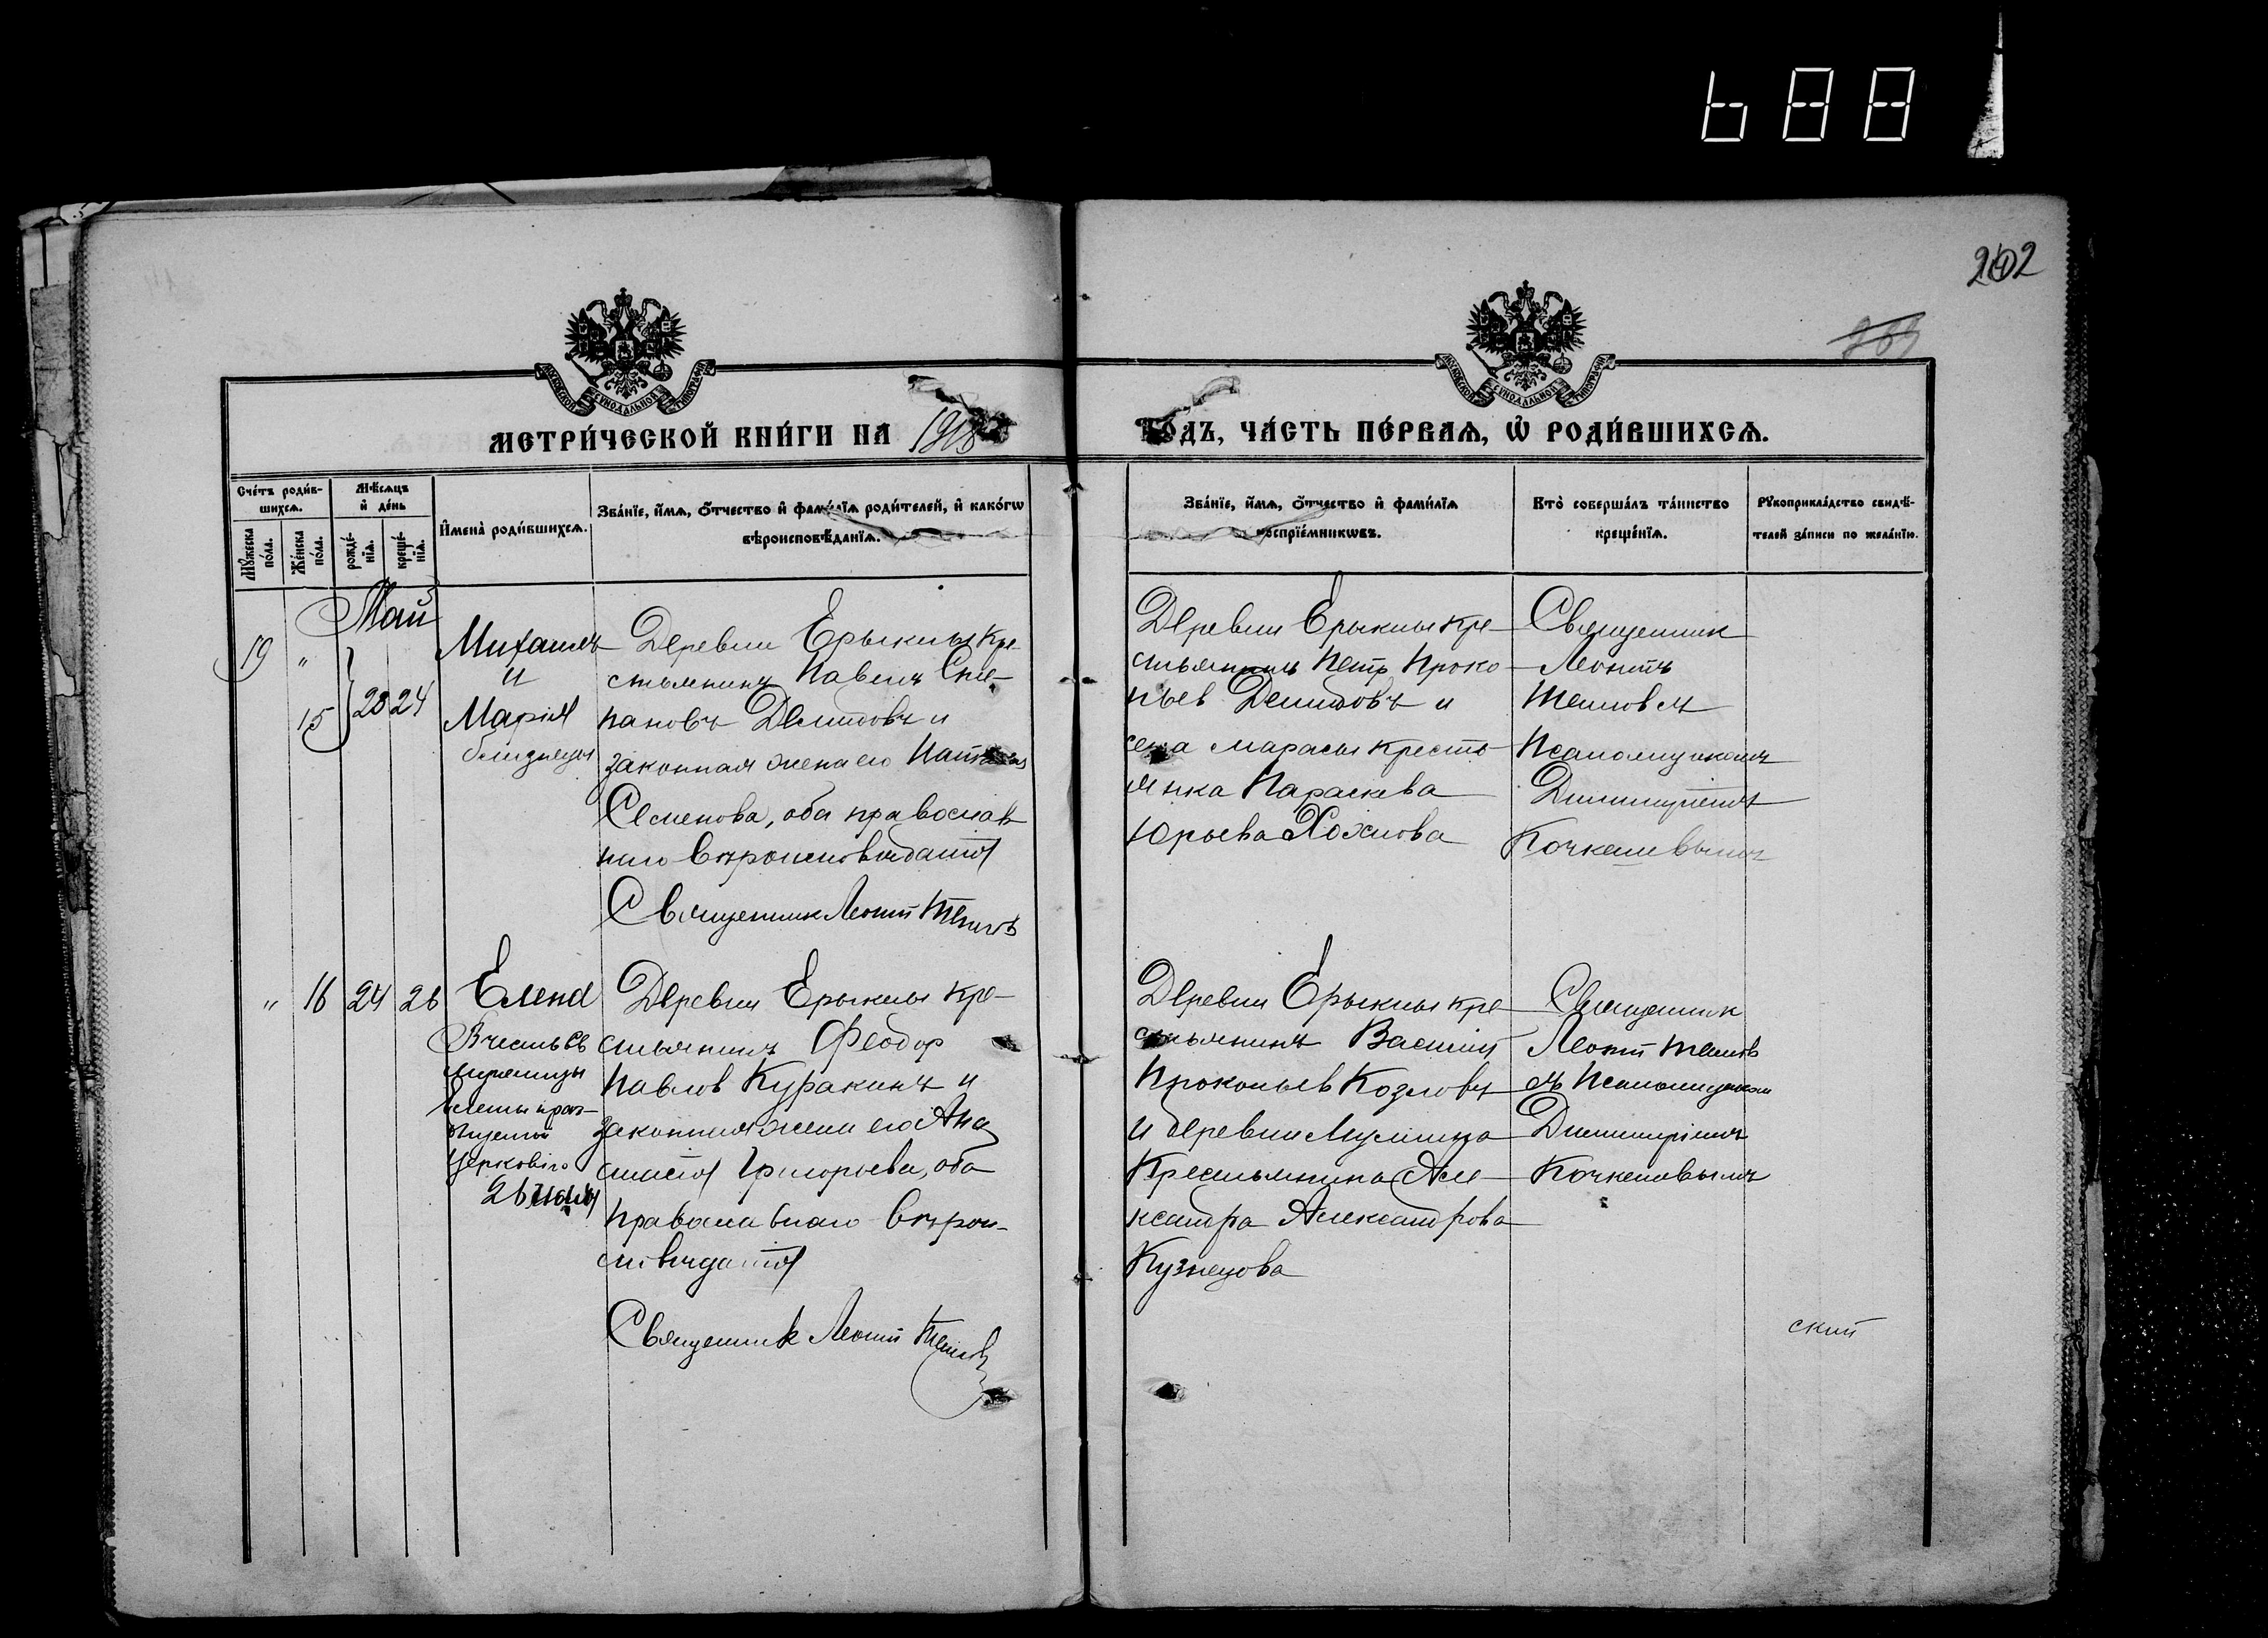 688
202
МОСКОВСКОЙ СУНОДАЛЬНОЙ ТИПОГРАФІИ
МОСКОВСКОЙ СУНОДАЛЬНОЙ ТИПОГРАФІИ
МЕТРИ́ЧЕСКОЙ КНИ́ГИ НА
ГО́ДЪ, ЧА́СТЬ ПЕ́РВАѦ, Ѡ҆ РОДИ́ВШИХСѦ.
Сче́тъ роди́в-
шихсѧ.
Мꙋ́жеска
по́ла.
Же́нска
по́ла.
Мѣ́сѧцъ
и҆ де́нь
рожде́-
нїѧ.
креще́-
нїѧ.
И҆мена̀ роди́вшихсѧ.
Зва́нїе, и҆́мѧ, ѻ҆́тчество и҆ фамѝлїѧ роди́телей, и҆ како́гѡ
вѣроисповѣ́данїѧ.
Зва́нїе, и҆́мѧ, ѻ҆́тчество и҆ фами́лїѧ
воспрїе́мникѡвъ.
Кто̀ соверша́лъ та́инство
креще́нїѧ.
Рꙋкоприкла́дство свидѣ́-
телей за́писи по жела́нїю.
Май
19 "
15
23 24
Михаилъ
и
Марія
близнецы
Деревни Ерыклы кре
стьянинъ Павелъ Сте-
пановъ Демидовъ и
законная жена его
Семенова, оба православ
наго вѣроисповѣданія
Священникъ Леонтій
Деревни Ерыклы кре-
стьянинъ Петръ Проко
пьев Демидовъ и
села кресть
янка Параскева
Юрьева Хохлова
Священник
Леонтій
Псаломщикомъ
Димитріемъ
" 16 24 26
Елена
В честь св
Елены праз-
церковію
Деревни Ерыклы кре-
стьянинъ Феодор
Павлов Куракинъ и
законная жена его Ана
стасія Григорьева, оба
православнаго вѣрои-
сповѣданія
Священник Леонтій
Деревни Ерыклы кре
стьянинъ Василій
Прокопьев Козловъ
и деревни
Крестьянина Але
ксандра Александрова
Кузнецова
Священник
Леонтій
съ Псаломщиком
Димитріемъ
ский